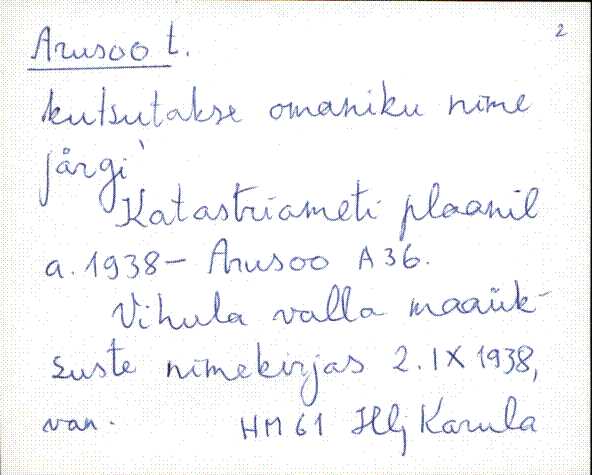 2
Arusoo t.
kutsutakse omaniku nime
järgi
Katastriameti plaanil
a. 1938 – Arusoo A 36.
Vihula valla maaük-
suste nimekirjas 2. IX 1938,
van. HM 61 Hlj Karula